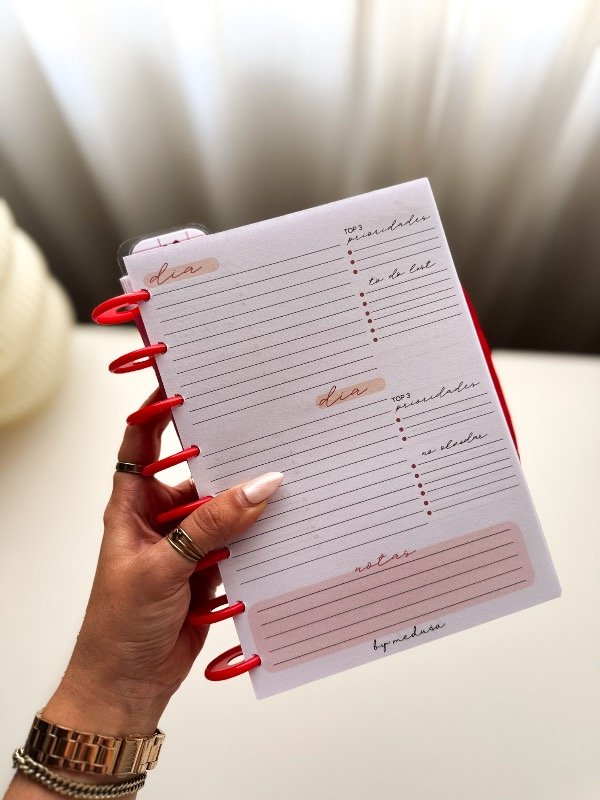 dia
TOP 3
prioridades
to do list
dia
TOP 3
prioridades
no olvidar
notas
by medusa